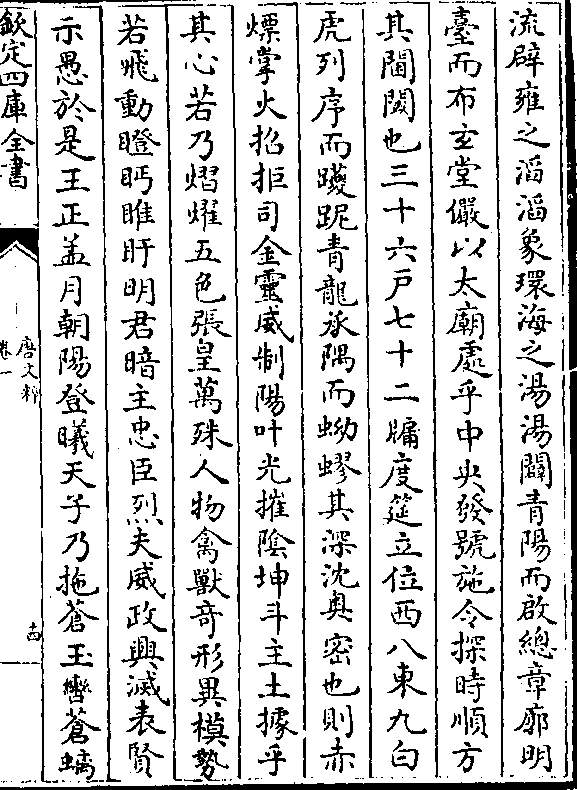 流辟雍之滔滔象環海之湯湯闢青陽而啟總章廓明
臺而布玄堂儼以太廟處乎中央發號施令採時順方
其閫閾也三十六戶七十二牖度筵立位西八東九白
虎列序而躨跜青龍承隅而蚴蟉其深沈奥密也則赤
熛掌火招拒司金靈威制陽叶光摧陰坤斗主土據乎
其心若乃熠燿五色張皇萬殊人物禽獸奇形異模勢
若飛動瞪眄睢盱明君暗主忠臣烈夫威政興滅表賢
示愚於是王正孟月朝陽登曦天子乃施蒼玉轡蒼螭
欽定四庫全書
唐文粹
卷一
十四